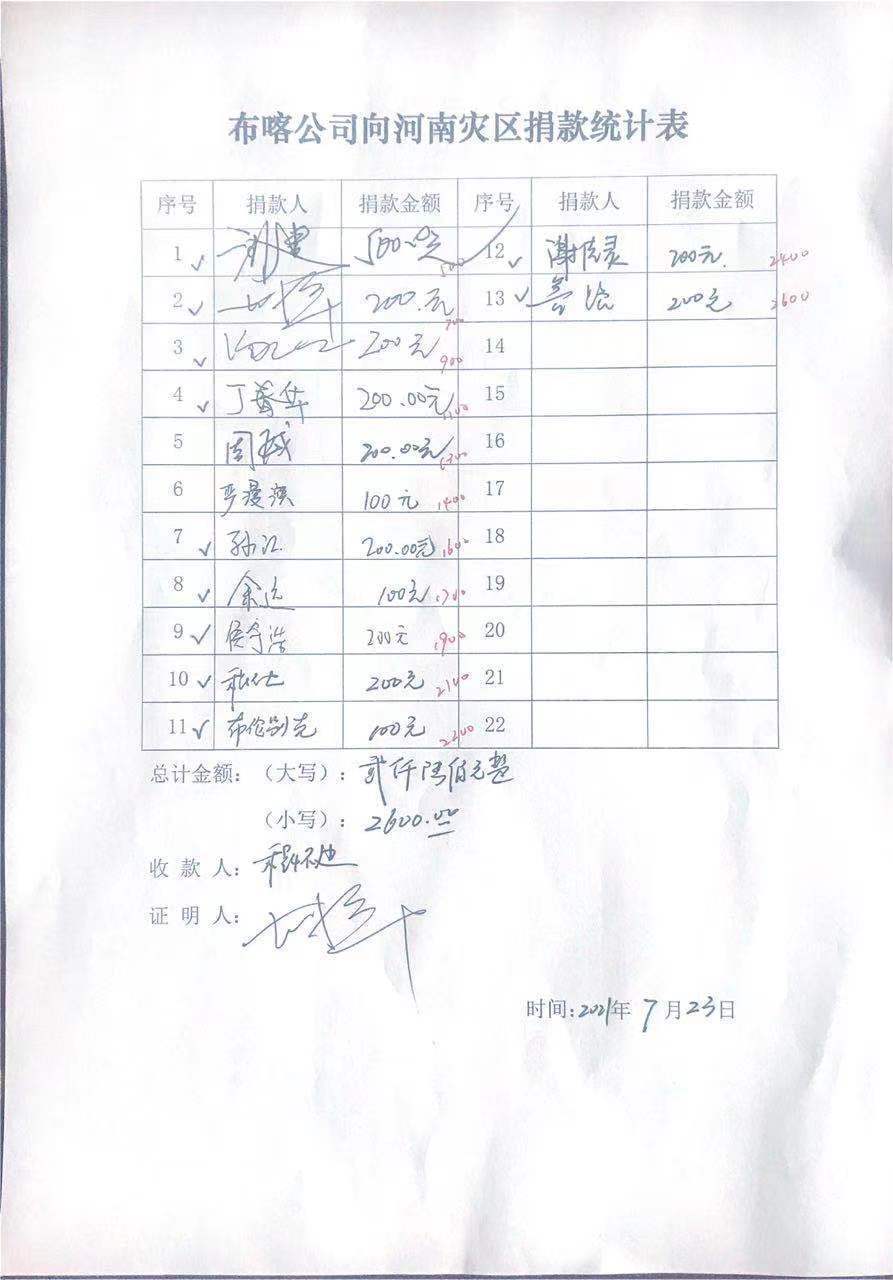 布喀公司向河南灾区捐款统计表
序号 捐款人 捐款金额 序号 捐款人 捐款金额
1 500.00元 500 12 200元 2400
2 200.元 700 13 200元 2600
3 200元 900 14
4 200.00元 1100 15
5 周 200.00元 1300 16
6 严漫滨 100元 1400 17
7 孙江 200.00元 1600 18
8 余远 100元 1700 19
9 200元 1900 20
10 200元 2100 21
11 布伦别克 100元 2200 22
总计金额：（大写）：贰仟陆佰元整
（小写）：2600.00
收 款 人：
证 明 人：
时间：2021年 7 月 23 日